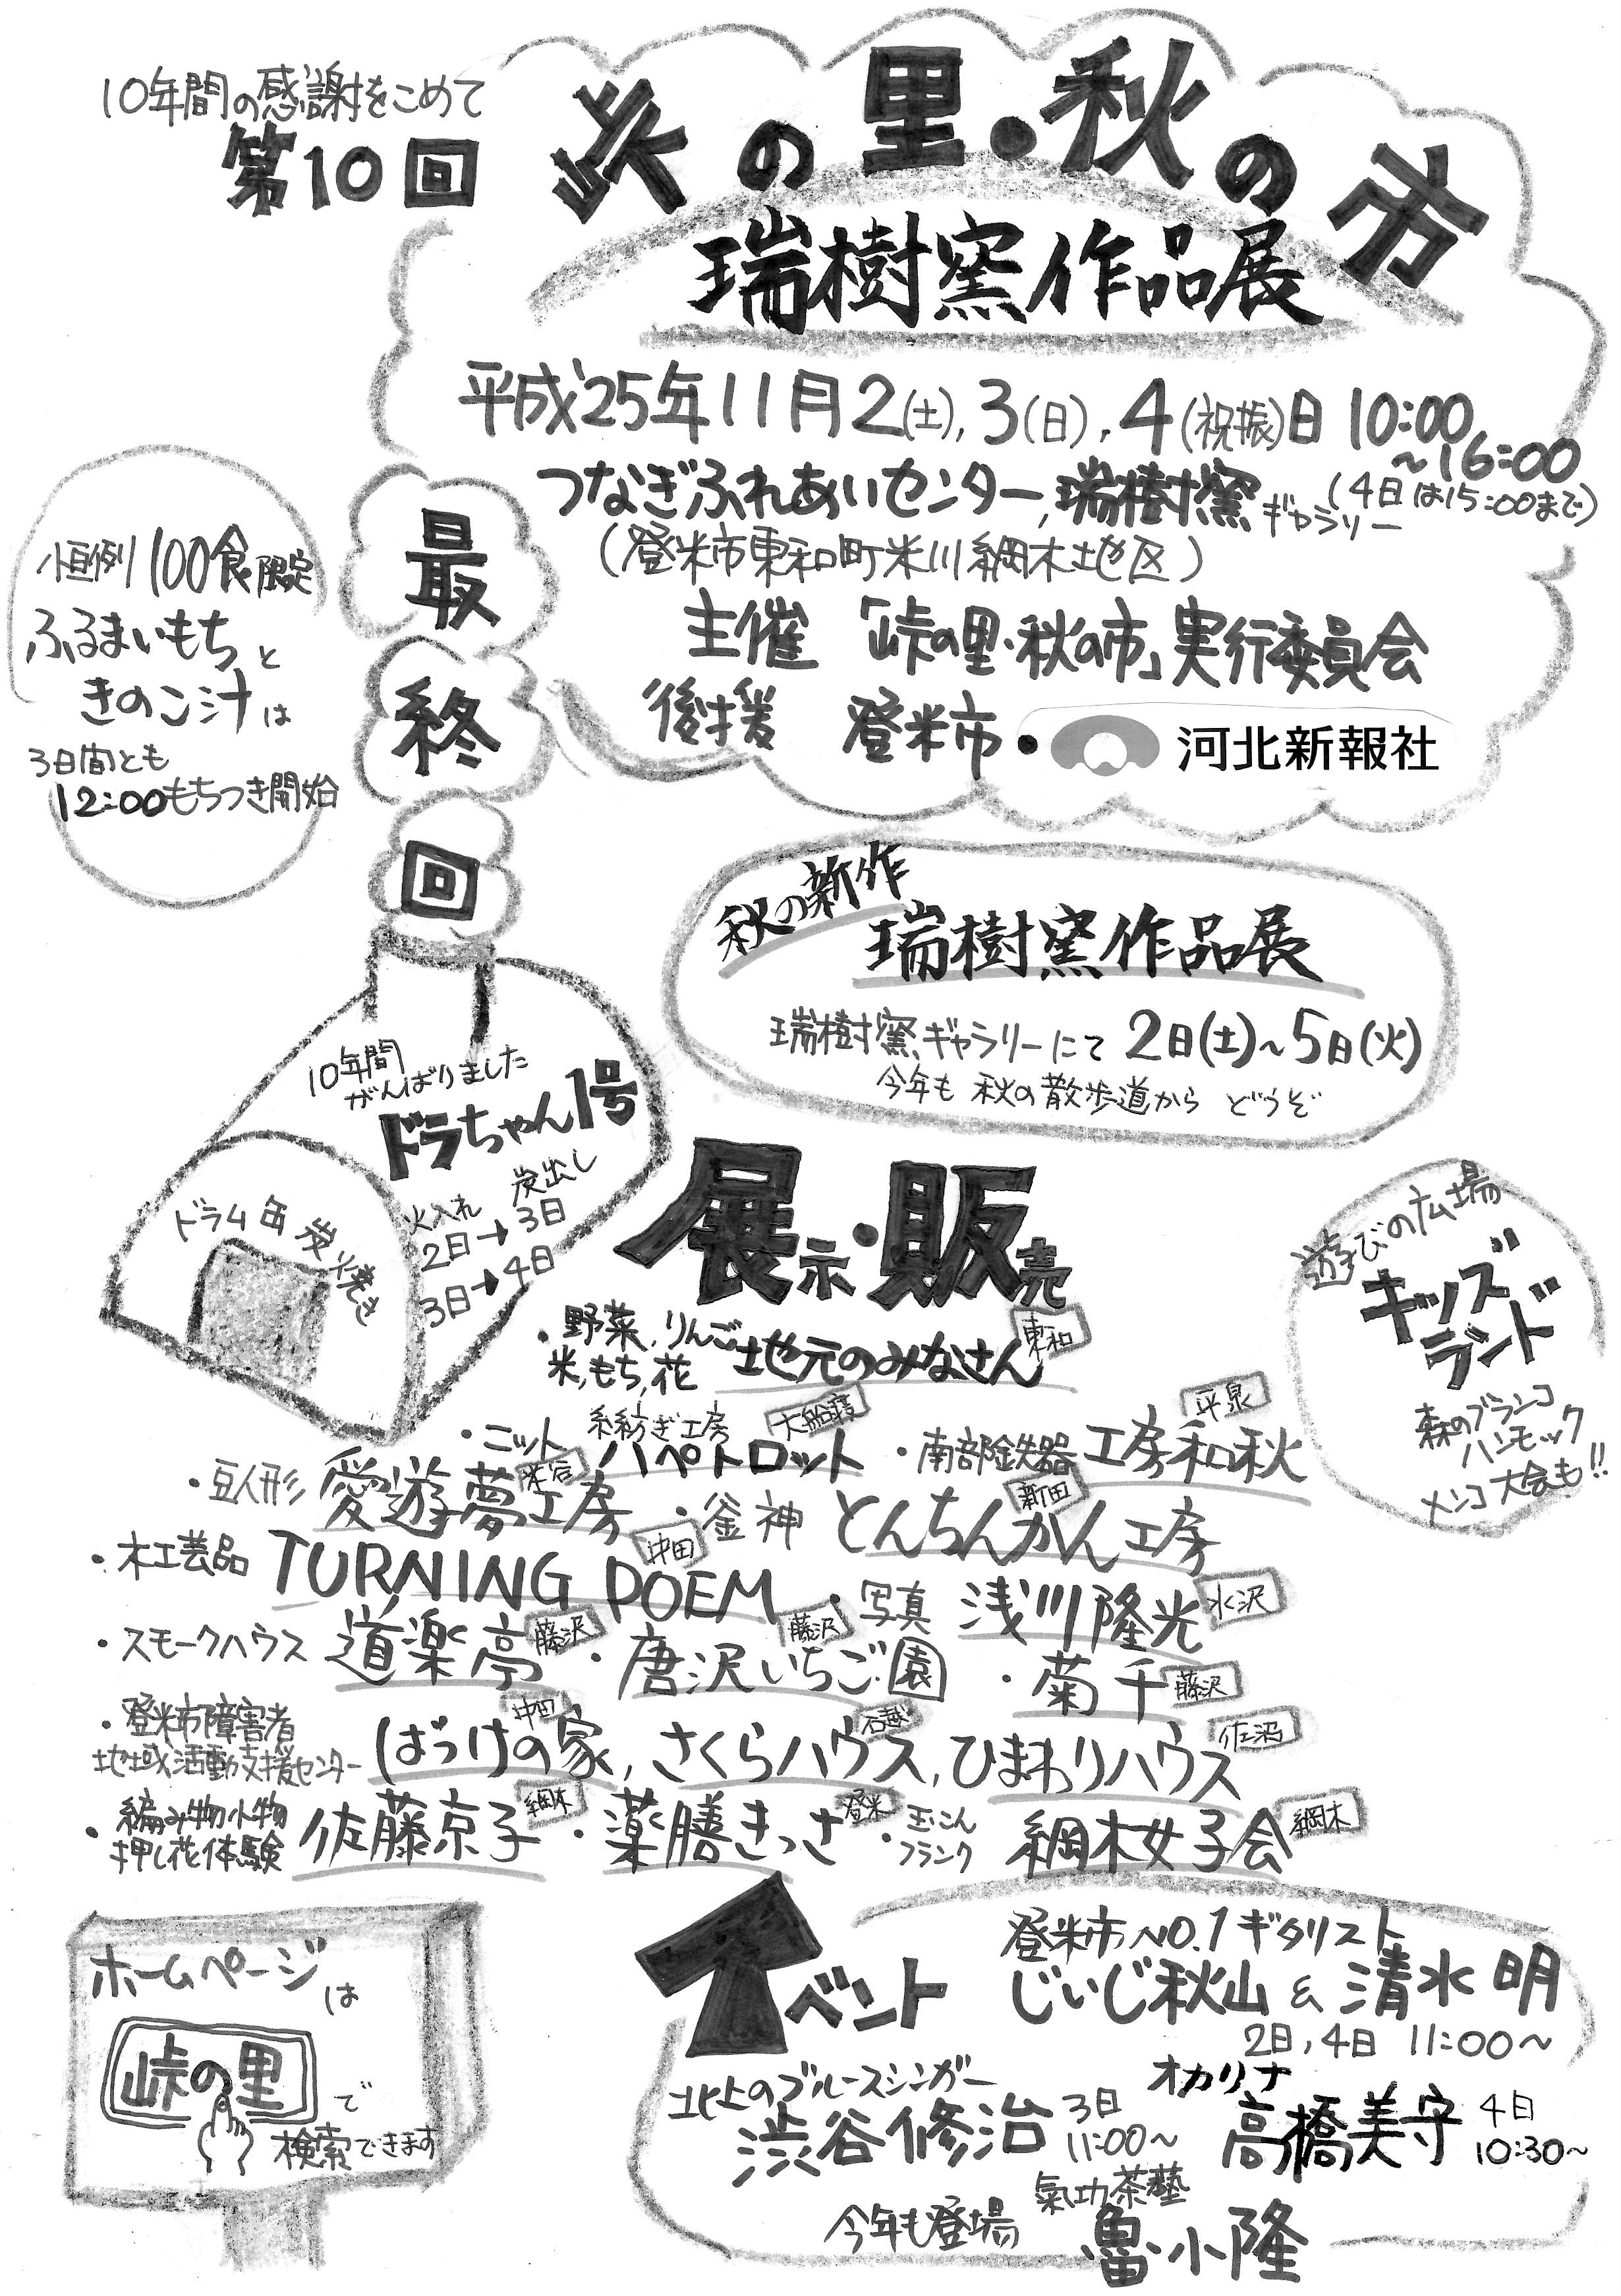 10年間の感謝をこめて
第10回
峠の里・秋の市
瑞樹窯作品展
平成25年11月2(土),3(日),4(祝振)日 10:00
~16:00
つなぎふれあいセンター,瑞樹窯ギャラリー
(4日は15:00まで)
(登米市東和町米川綱木地区)
主催 「峠の里・秋の市」実行委員会
後援 登米市・河北新報社
最終回
恒例100食限定
ふるまいもちと
きのこ汁は
3日間とも
12:00もちつき開始
秋の新作
瑞樹窯作品展
瑞樹窯ギャラリーにて 2日(土)~5日(火)
今年も 秋の散歩道から どうぞ
10年間
がんばりました
ドラちゃん1号
火入れ 炭出し
2日→3日
3日→4日
ドラム缶炭焼き
展示・販売
遊びの広場
キッズ
ランド
森のブランコ
ハンモック
メンコ大会も!!
・野菜,りんご
米,もち,花
地元のみなさん 東和
・ニット 糸紡ぎ工房
ハペトロット 大船渡
・南部鉄器 工房和秋 平泉
・豆人形 愛遊夢工房 米谷
・釜神 とんちんかん工房 新田
・木工芸品 TURNING POEM 中田
・写真 浅川隆光 水沢
・スモークハウス 道楽亭 藤沢
・唐沢いちご園 藤沢
・菊千 藤沢
・登米市障害者
地域活動支援センター
ばっけの家 中田, さくらハウス 石越, ひまわりハウス 佐沼
・編み物小物
押し花体験
佐藤京子 綱木
・薬膳きっさ 登米
・玉こん
フランク
綱木女子会 綱木
ホームページは
峠の里で
検索できます
イベント
登米市NO.1ギタリスト
じいじ秋山&清水明
2日,4日 11:00~
北上のブルースシンガー
渋谷修治 3日
11:00~
オカリナ
高橋美守 4日
10:30~
今年も登場
氣功茶藝
魯小隆